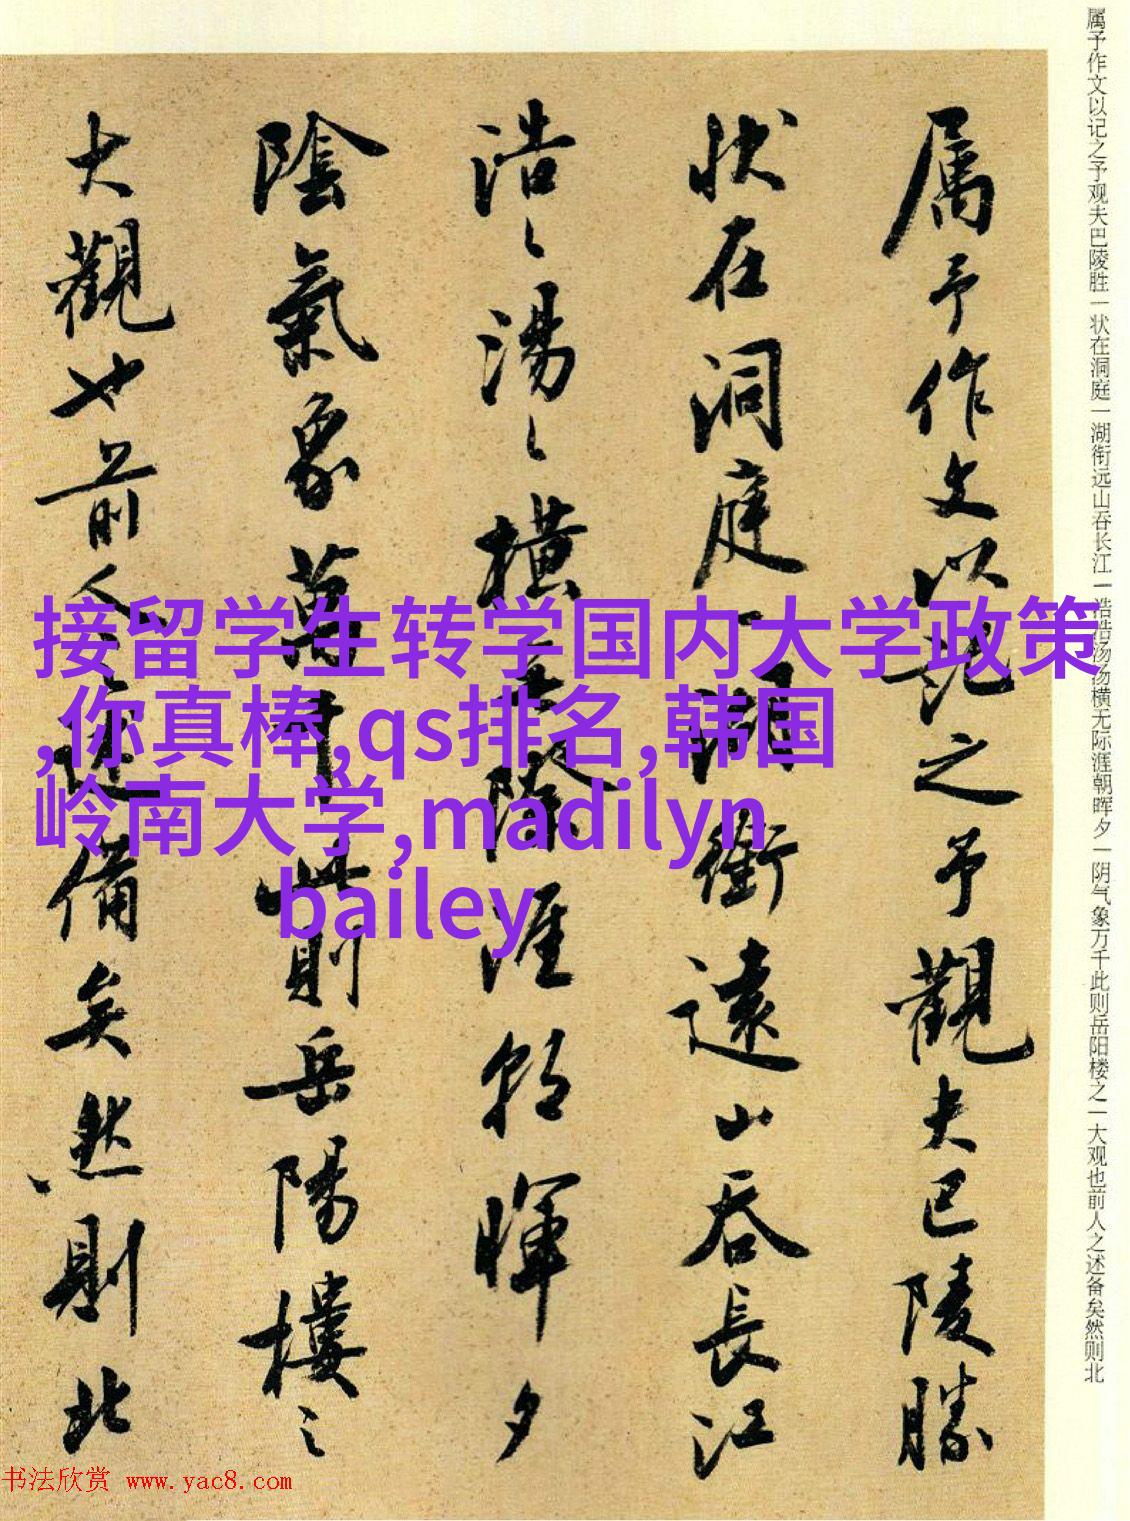 属予作文以记之予观夫巴陵胜一状在洞庭一湖衔远山吞长江一浩浩汤汤横无际涯朝晖夕一阴气象万千此则岳阳楼之一大观也前人之述备矣然则北
属予作文以記之予觀夫巴陵勝
状在洞庭一湖銜遠山吞長江
浩〻湯〻橫無際涯朝暉夕
陰氣象萬千此則岳陽樓之
大觀也前人之述備矣然則北
接留学生转学国内大学政策
,你真棒,qs排名,韩国
岭南大学,madilyn
bailey
书法欣赏 www.yac8.com